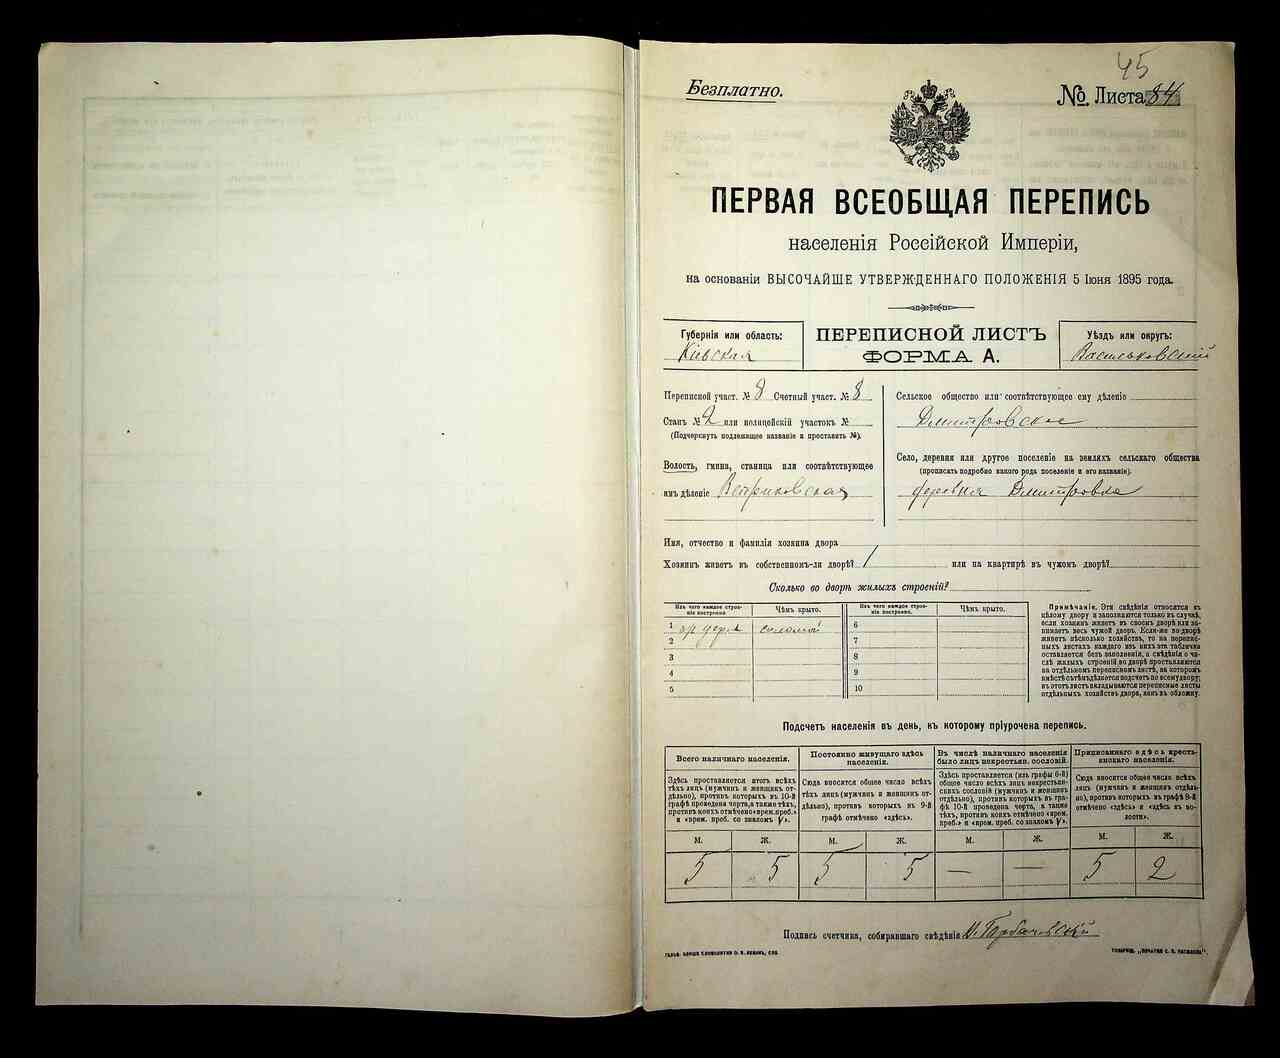 45
Безплатно.
№ Листа 84
ПЕРВАЯ ВСЕОБЩАЯ ПЕРЕПИСЬ
населенія Россійской Имперіи,
на основаніи ВЫСОЧАЙШЕ УТВЕРЖДЕННАГО ПОЛОЖЕНІЯ 5 Іюня 1895 года.
Губернія или область:
Кіевская
ПЕРЕПИСНОЙ ЛИСТЪ
ФОРМА А.
Уѣздъ или округъ:
Васильковскій
Переписной участ. № 8 Счетный участ. № 8
Станъ № 2 или полицейскій участокъ №
(Подчеркнуть подлежащее названіе и проставить №).
Волость, гмина, станица или соотвѣтствующее
имъ дѣленіе
Сельское общество или соотвѣтствующее ему дѣленіе
Дмитровское
Село, деревня или другое поселеніе на земляхъ сельскаго общества
(прописать подробно какого рода поселеніе и его названіе).
деревня Дмитровка
Имя, отчество и фамилія хозяина двора
Хозяинъ живетъ въ собственномъ-ли дворѣ? / или на квартирѣ въ чужомъ дворѣ?
Сколько во дворѣ жилыхъ строеній?
Изъ чего каждое строе-
ніе построено.
Чѣмъ крыто.
Изъ чего каждое строе-
ніе построено.
Чѣмъ крыто.
1 соломой
2
3
4
5
6
7
8
9
10
Примѣчаніе. Эти свѣдѣнія относятся къ
цѣлому двору и заполняются только въ случаѣ,
если хозяинъ живетъ въ своемъ дворѣ или за-
нимаетъ весь чужой дворъ. Если-же во дворѣ
живетъ нѣсколько хозяйствъ, то на перепис-
ныхъ листахъ каждаго изъ нихъ эта табличка
оставляется безъ заполненія, а свѣдѣнія о чи-
слѣ жилыхъ строеній во дворѣ проставляются
на отдѣльномъ переписномъ листѣ, на которомъ
вмѣстѣ съ тѣмъ дѣлается подсчетъ по всему двору;
въ этотъ листъ вкладываются переписные листы
отдѣльныхъ хозяйствъ двора, какъ въ обложку.
Подсчетъ населенія въ день, къ которому пріурочена перепись.
Всего наличнаго населенія.
Здѣсь проставляется итогъ всѣхъ
тѣхъ лицъ (мужчинъ и женщинъ от-
дѣльно), противъ которыхъ въ 10-й
графѣ проведена черта, а также тѣхъ,
противъ коихъ отмѣчено «врем. преб.»
и «врем. преб. со знакомъ V».
Постоянно живущаго здѣсь
населенія.
Сюда вносится общее число всѣхъ
тѣхъ лицъ (мужчинъ и женщинъ от-
дѣльно), противъ которыхъ въ 9-й
графѣ отмѣчено «здѣсь».
Въ числѣ наличнаго населенія
было лицъ некрестьян. сословій.
Здѣсь проставляется (изъ графы 6-й)
общее число всѣхъ лицъ некрестьян-
скихъ сословій (мужчинъ и женщинъ
отдѣльно), противъ которыхъ въ гра-
фѣ 10-й проведена черта, а также
тѣхъ, противъ коихъ отмѣчено «врем.
преб.» и «врем. преб. со знакомъ V».
Приписаннаго здѣсь кресть-
янскаго населенія.
Сюда вносится общее число всѣхъ
лицъ (мужчинъ и женщинъ отдѣль-
но), противъ которыхъ въ графѣ 8-й
отмѣчено «здѣсь» и «здѣсь въ во-
лости».
М. Ж. М. Ж. М. Ж. М. Ж.
5 5 5 5 — — 5 2
Подпись счетчика, собиравшаго свѣдѣнія Горбачевскій